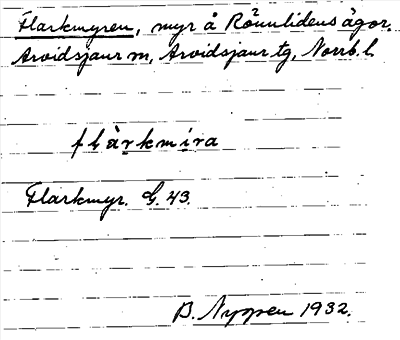 Flarkmyren, myr å Rönnlidens ägor.
Arvidsjaur sn, Arvidsjaur tg, Norrb. l.
flàrkmira
Flarkmyr. G. 43.
B. Nyppen 1932.